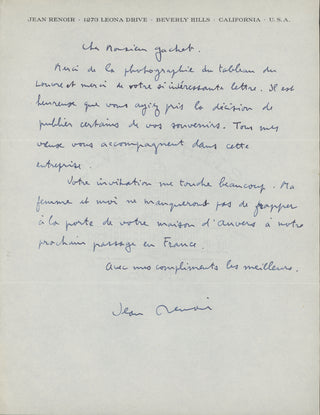 JEAN RENOIR · 1270 LEONA DRIVE · BEVERLY HILLS · CALIFORNIA · U.S.A.
Cher Monsieur Gachet.
Merci de la photographie du tableau du
Louvre et merci de votre si intéressante lettre. Il est
heureuse que vous ayiez pris la décision de
publier certains de vos souvenirs. Tous mes
vœux vous accompagnent dans cette
entreprise.
Votre invitation me touche beaucoup. Ma
femme et moi ne manqueront pas de frapper
à la porte de votre maison d'Auvers à notre
prochain passage en France.
Avec mes compliments les meilleurs.
Jean Renoir